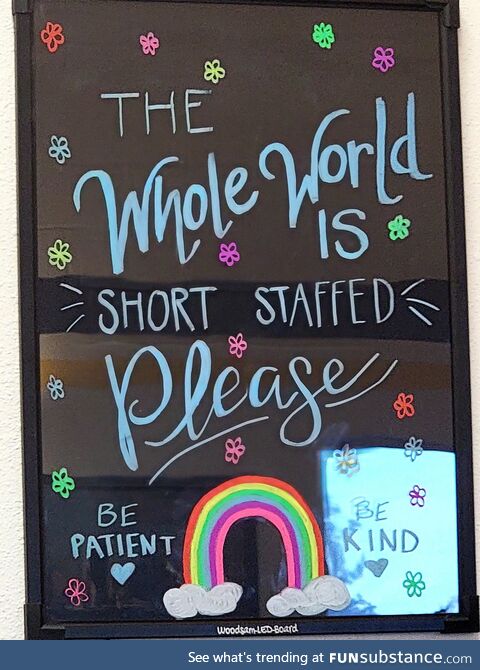 THE
Whole World
IS
SHORT STAFFED
Please
BE
PATIENT
BE
KIND
Woodsam-LED-Board
See what's trending at FUNsubstance.com